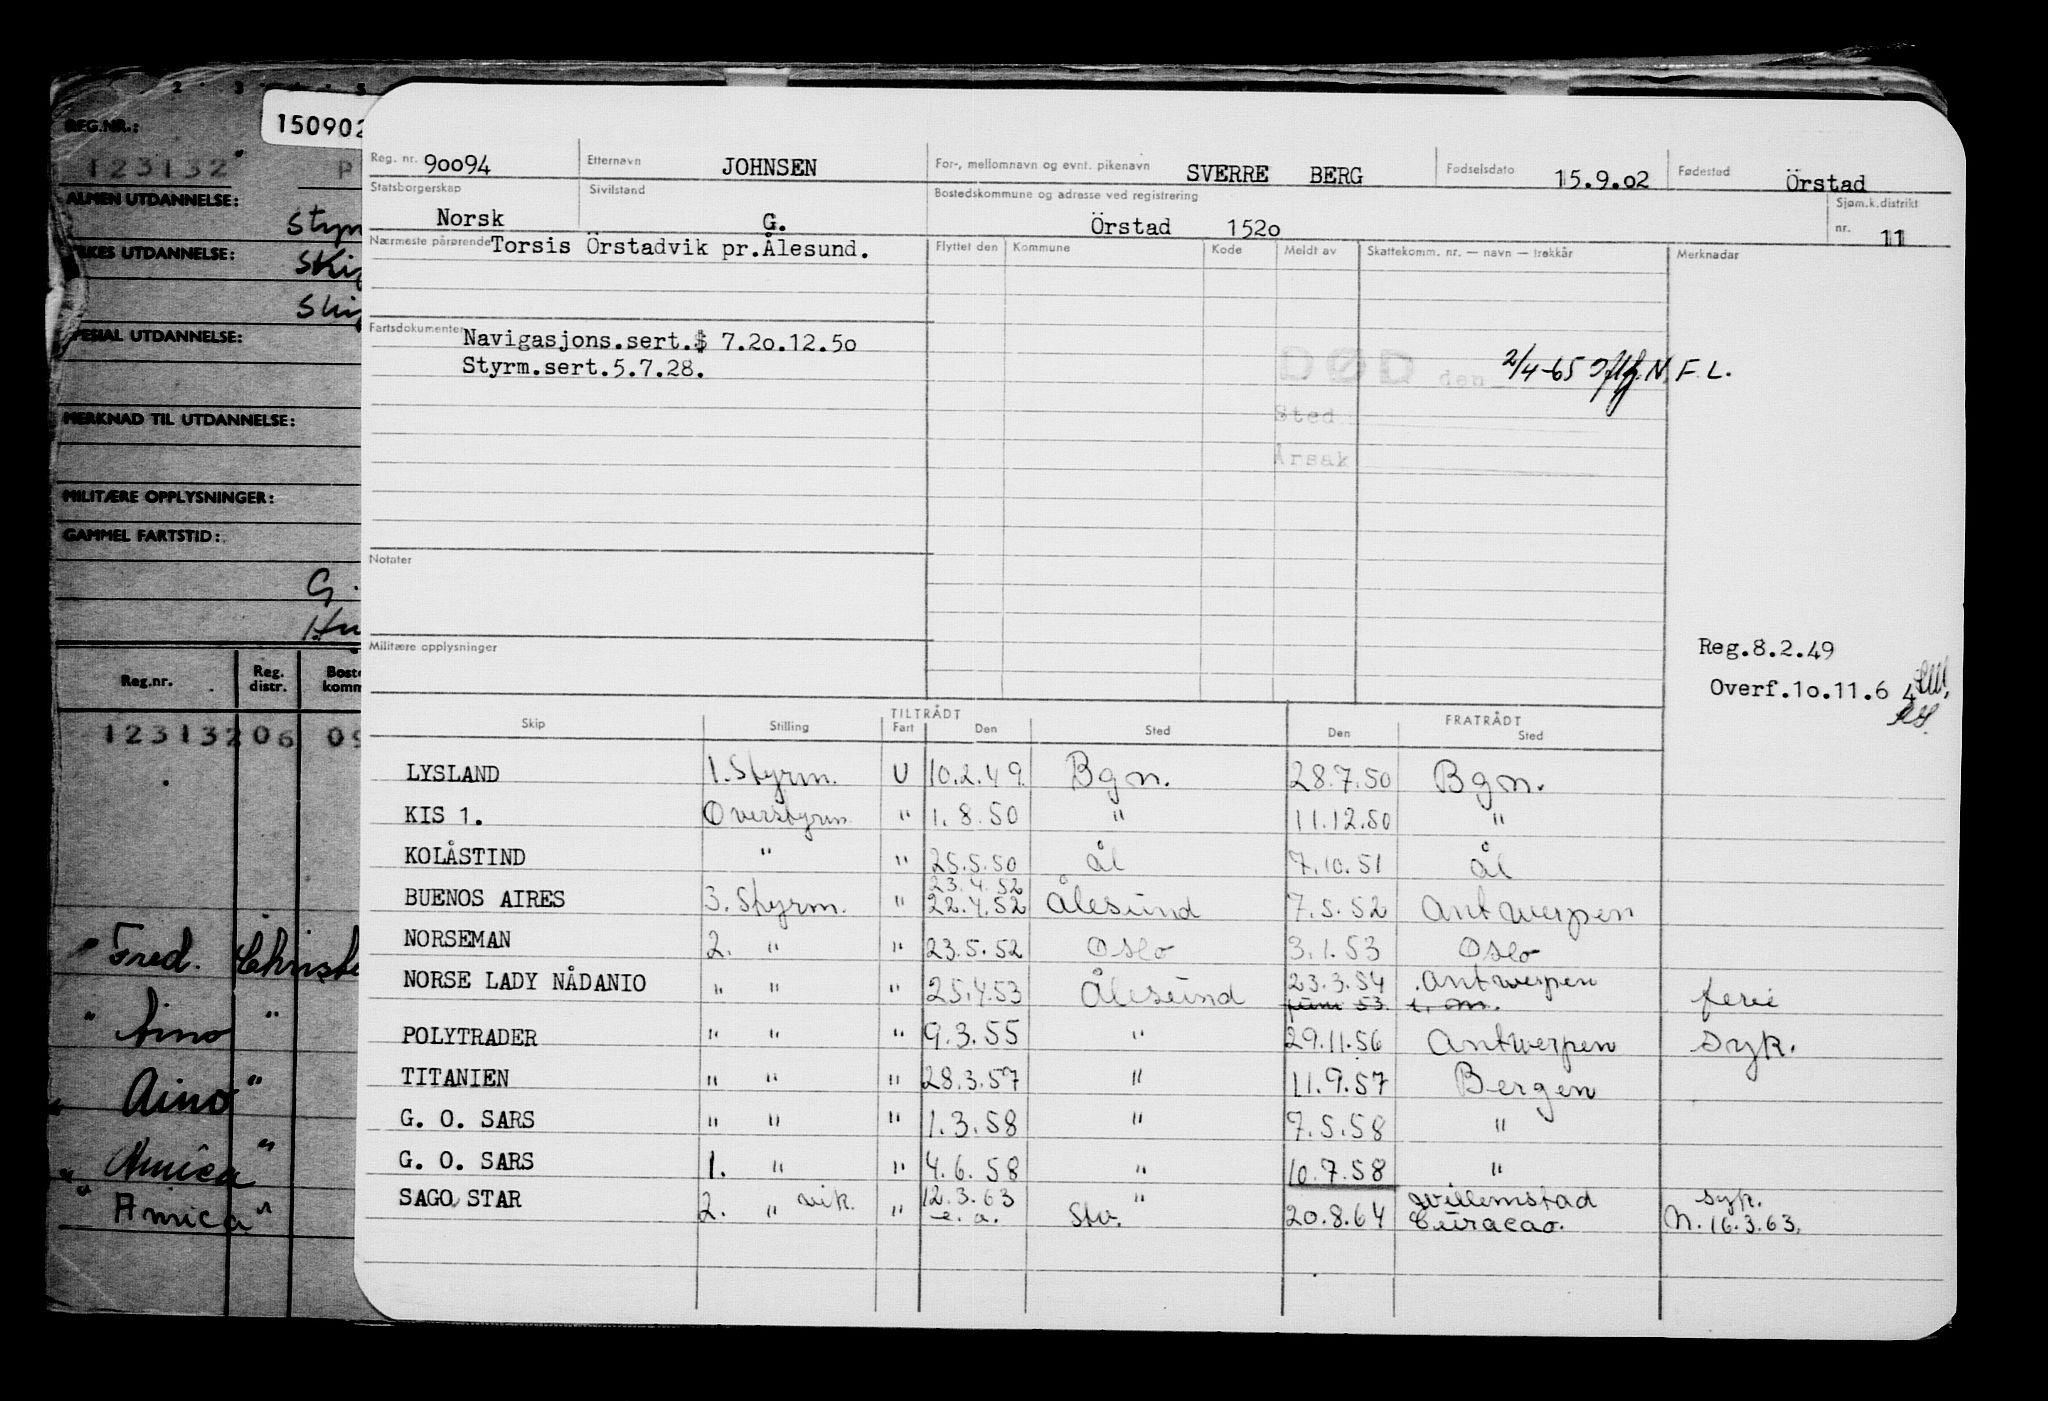 2 3 4 5
REG.NR.:
123132 P
ALMEN UTDANNELSE:
Styr
YRKES UTDANNELSE:
Ski
Ski
SPESIAL UTDANNELSE:
MERKNAD TIL UTDANNELSE:
MILITÆRE OPPLYSNINGER:
GAMMEL FARTSTID:
G.
Hu
Reg.nr. Reg. distr. Boste komm
123132 06 09
" Fred. Christe
" Aino "
" Aino "
" Amica "
" Amica "
150902
Reg. nr. 90094 Etternavn JOHNSEN For-, mellomnavn og evnt. pikenavn SVERRE BERG Fødselsdato 15.9.02 Fødested Örstad
Statsborgerskap Norsk Sivilstand G. Bostedskommune og adresse ved registrering Örstad 1520 Sjøm.k.distrikt nr. 11
Nærmeste pårørende Torsis Örstadvik pr.Ålesund. Flyttet den Kommune Kode Meldt av Skattekomm. nr. — navn — trekkår Merknadar
Fartsdokumenter Navigasjons.sert.$ 7.20.12.50
Styrm.sert.5.7.28.
DØD den 2/4-65 N.F.L.
Sted
Årsak
Notater
Militære opplysninger
Reg.8.2.49
Overf.10.11.6 4
TILTRÅDT FRATRÅDT
Skip Stilling Fart Den Sted Den Sted
LYSLAND 1. Styrm. U 10.2.49. Bgn. 28.7.50 Bgn.
KIS 1. Overstyrm. " 1.8.50 " 11.12.50 "
KOLÅSTIND " " 25.5.50 Ål 7.10.51 Ål
23.4.52
BUENOS AIRES 3. Styrm. " 22.4.52 Ålesund 7.5.52 Antwerpen
NORSEMAN 2. " " 23.5.52 Oslo 3.1.53 Oslo
NORSE LADY NÅDANIO " " " 25.4.53 Ålesund 23.3.54 Antwerpen ferie
juni 53 i. m.
POLYTRADER " " " 9.3.55 " 29.11.56 Antwerpen syk.
TITANIEN " " " 28.3.57 " 11.9.57 Bergen
G. O. SARS " " " 1.3.58 " 7.5.58 "
G. O. SARS 1. " " 4.6.58 " 10.7.58 "
SAGO STAR 2. " vik. " 12.3.63 " Willemstad syk.
e. a. Stv. 20.8.64 Curacao. N. 16.3.63.